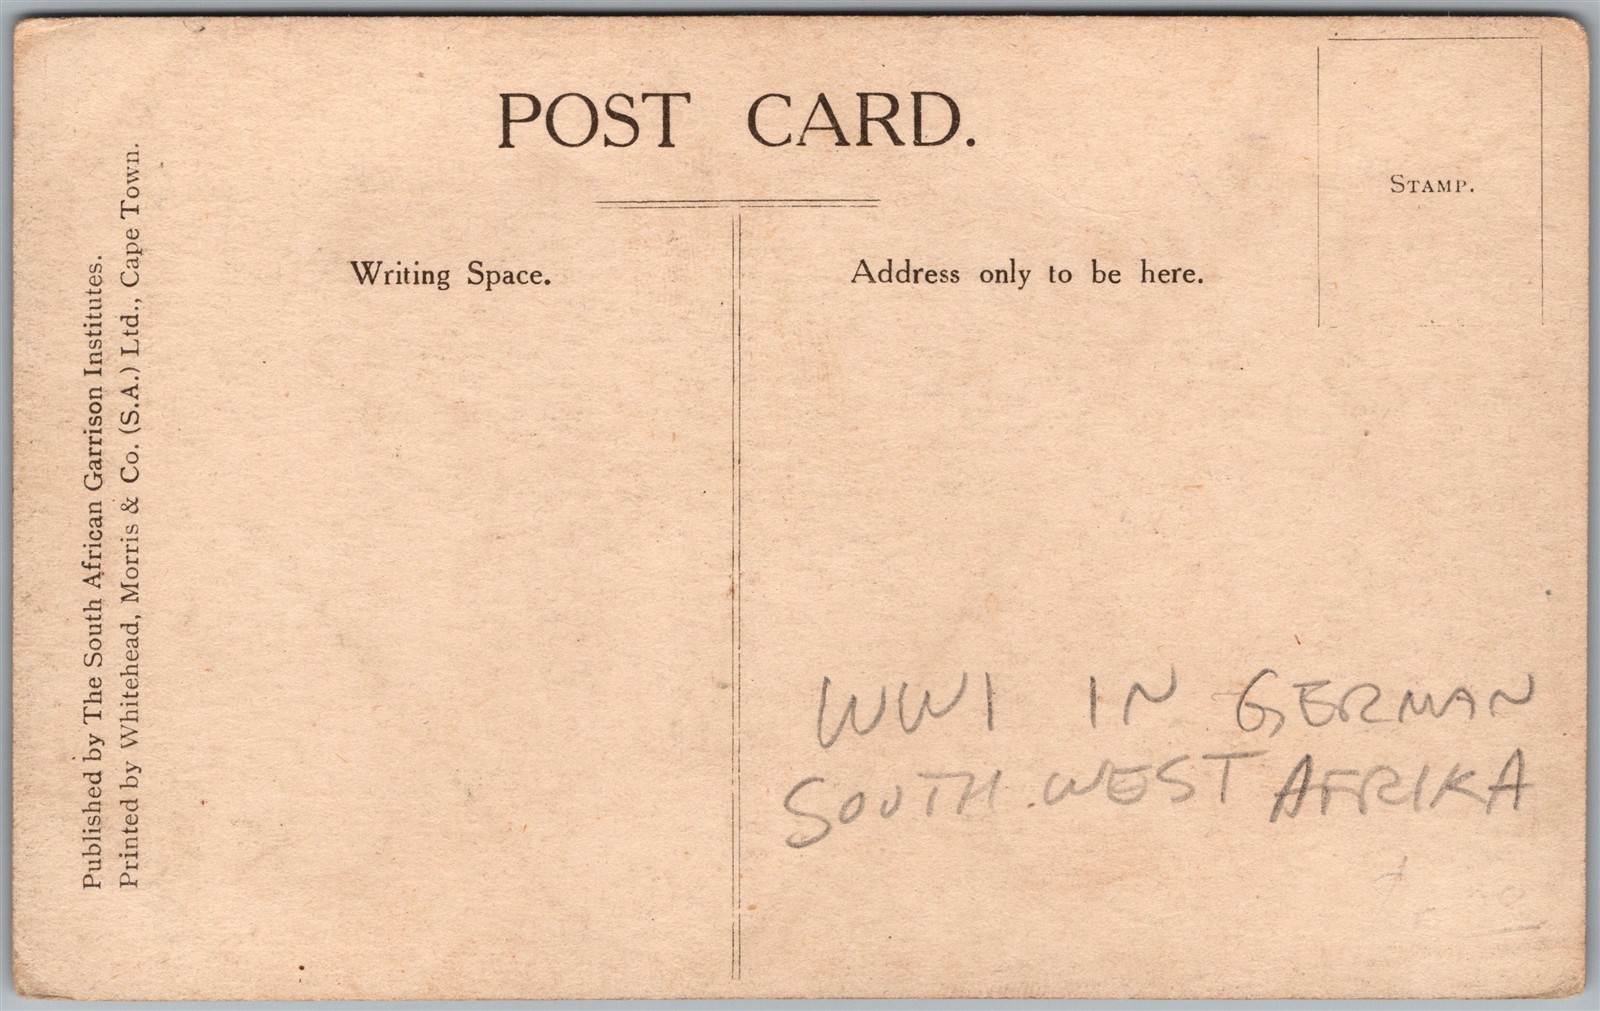 POST CARD.
STAMP.
Writing Space.
Address only to be here.
Published by The South African Garrison Institutes.
Printed by Whitehead, Morris & Co. (S.A.) Ltd., Cape Town.
WW1 IN GERMAN
SOUTH.WEST AFRIKA